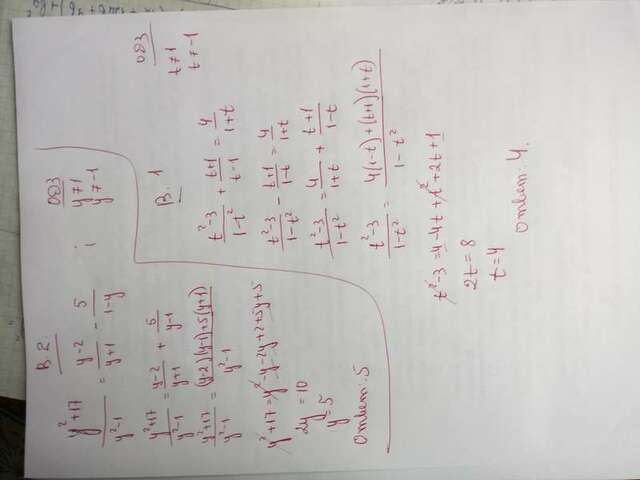 В. 2.
(y²+17)/(y²-1) = (y-2)/(y+1) - 5/(1-y) ; ОДЗ y≠1 y≠-1
(y²+17)/(y²-1) = (y-2)/(y+1) + 5/(y-1)
(y²+17)/(y²-1) = ((y-2)(y-1)+5(y+1))/(y²-1)
y²+17 = y²-y-2y+2+5y+5
2y = 10
y = 5
Ответ: 5
В. 1
ОДЗ
t≠1
t≠-1
(t²-3)/(1-t²) + (t+1)/(t-1) = 4/(1+t)
(t²-3)/(1-t²) - (t+1)/(1-t) = 4/(1+t)
(t²-3)/(1-t²) = 4/(1+t) + (t+1)/(1-t)
(t²-3)/(1-t²) = (4(1-t)+(t+1)(1+t))/(1-t²)
t²-3 = 4-4t+t²+2t+1
2t = 8
t = 4
Ответ: 4.